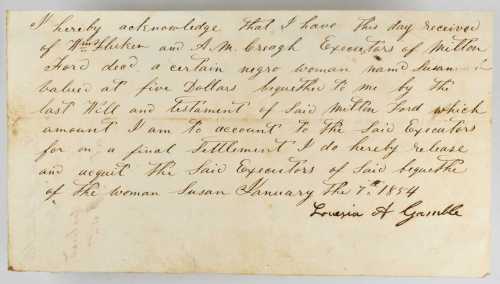 I hereby acknowledge that I have this day received
of Wm and A. M. Creagh Executors of Milton
Ford decd a certain negro woman namd Susan
Valued at five Dollars bequethe to me by the
last Will and testament of Said Milton Ford which
amount I am to account to the Said Executors
for on a final Settlement I do hereby release
and acquit the Said Executors of Said bequethe
of the woman Susan January the 7th 1854
Louesia A Gamble